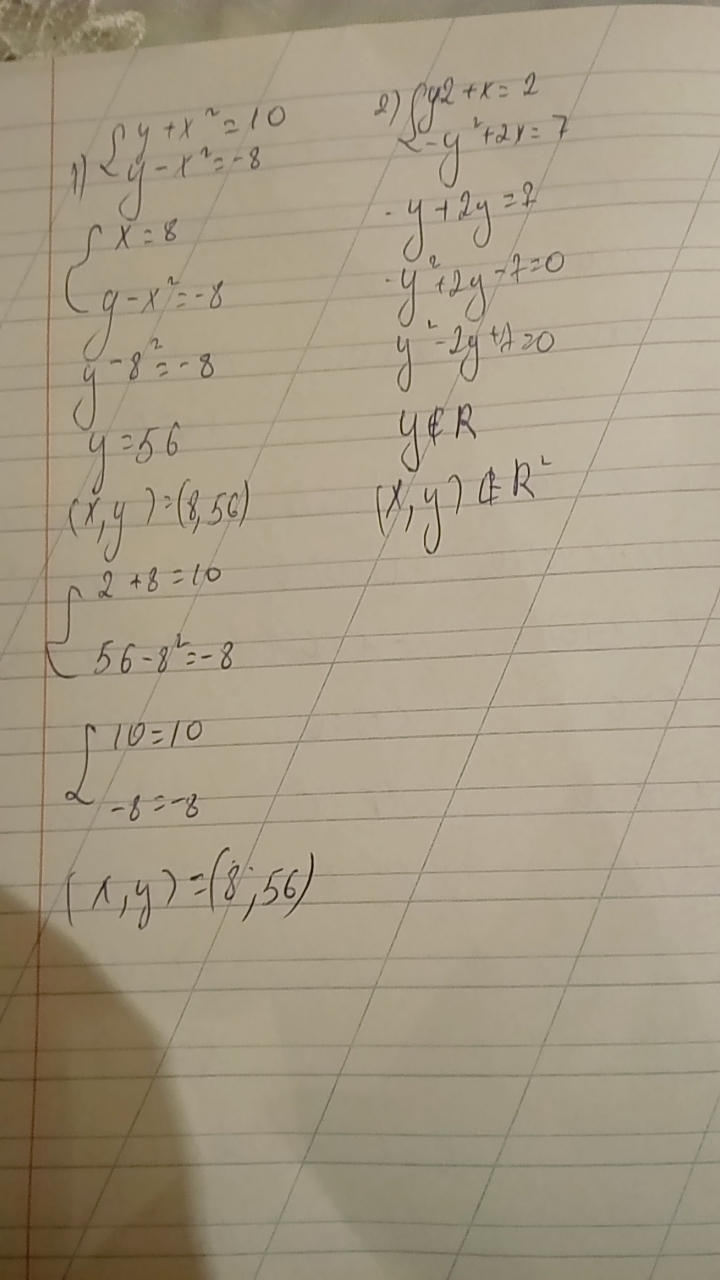 1) { y + x² = 10
y - x² = -8
{ x = 8
y - x² = -8
y - 8² = -8
y = 56
(x, y) = (8, 56)
{ 2 + 8 = 10
56 - 8² = -8
{ 10 = 10
-8 = -8
(x, y) = (8; 56)
2) { y2 + x = 2
-y² + 2x = 7
-y + 2y = 7
-y² + 2y - 7 = 0
y² - 2y + 7 = 0
y ∉ R
(x, y) ∉ R²